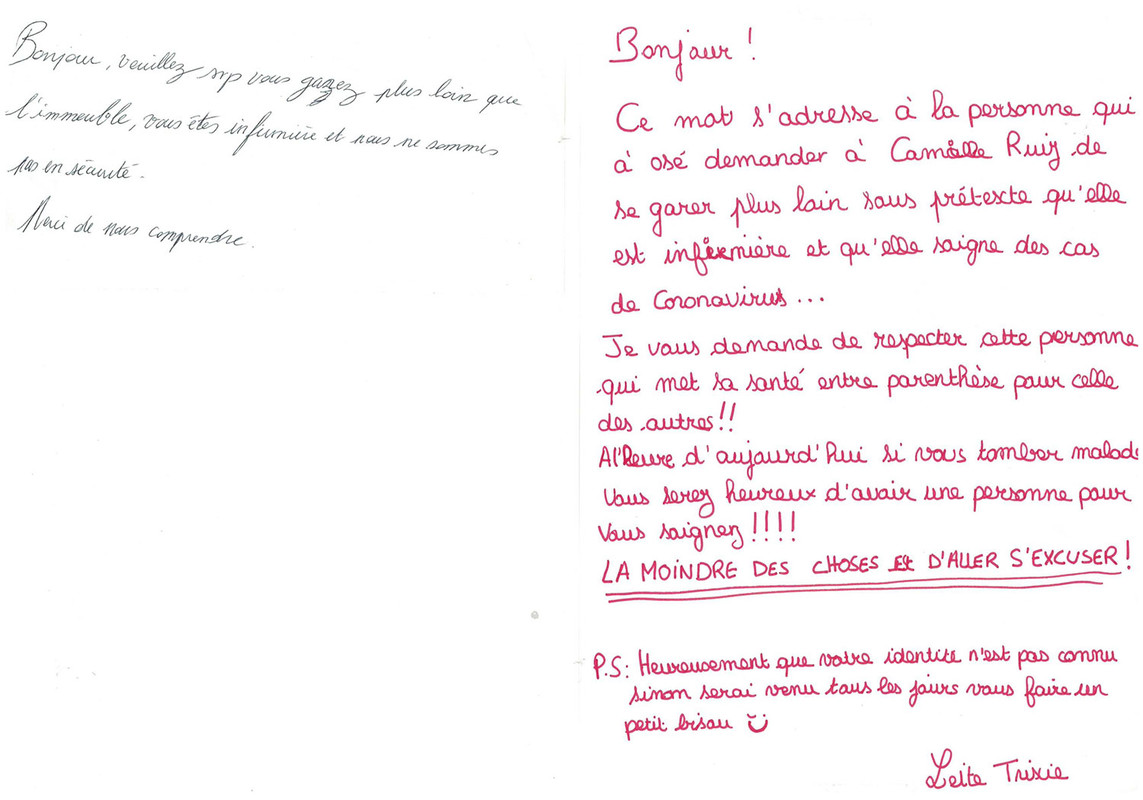 Bonjour, veuillez svp vous garez plus loin que
l'immeuble, vous êtes infirmière et nous ne sommes
pas en sécurité.
Merci de nous comprendre.
Bonjour !
Ce mot s'adresse à la personne qui
à osé demander à Camille Ruiz de
se garer plus loin sous prétexte qu'elle
est infirmière et qu'elle soigne des cas
de Coronavirus...
Je vous demande de respecter cette personne
qui met sa santé entre parenthèse pour celle
des autres!!
A l'heure d'aujourd'hui si vous tomber malade
Vous serez heureux d'avoir une personne pour
Vous soignez!!!!
LA MOINDRE DES CHOSES Et D'ALLER S'EXCUSER!
P.S: Heureusement que votre identité n'est pas connu
sinon serai venu tous les jours vous faire un
petit bisou
Leite Trixie